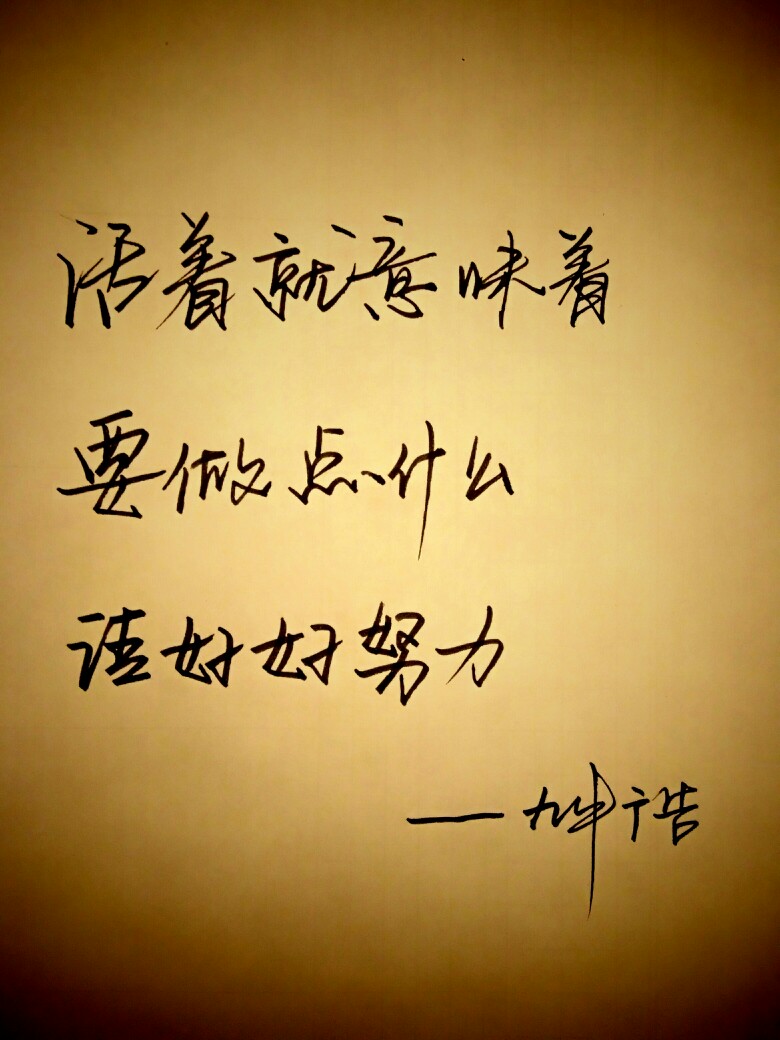 活着就意味着
要做点什么
请好好努力
——坤浩